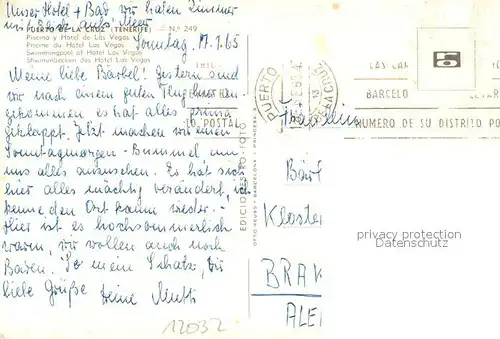 Unser Hotel + Bad wir haben Zimmer
mit Blick aufs Meer
PUERTO DE LA CRUZ (TENERIFE) Nº 249
Piscina y Hotel de Las Vegas
Piscine du Hotel Las Vegas
Swimmingpool at Hotel Las Vegas
Shwimmbecken des Hotel Las Vegas
Sonntag, 17.1.65
Meine liebe Bärbel! Gestern sind
wir nach einem guten Flug hier an-
gekommen es hat alles prima
geklappt. Jetzt machen wir einen
Sonntagmorgen-Bummel, um
uns alles anzusehen. Es hat sich
hier alles mächtig verändert, ich
kenne den Ort kaum wieder.-
Hier ist es hochsommerlich
warm, wir wollen auch noch
Baden. So mein Schatz, Dir
liebe Grüße Deine Mutti
12032
EDICIONES
FOTO
BARCELONA
PUERTO
CRUZ
LAS CAR
BARCELO
O POSTAL
NUMERO DE SU DISTRITO PO
Fräulein
Bärb
Kloster
BRAK
ALE
privacy protection
Datenschutz